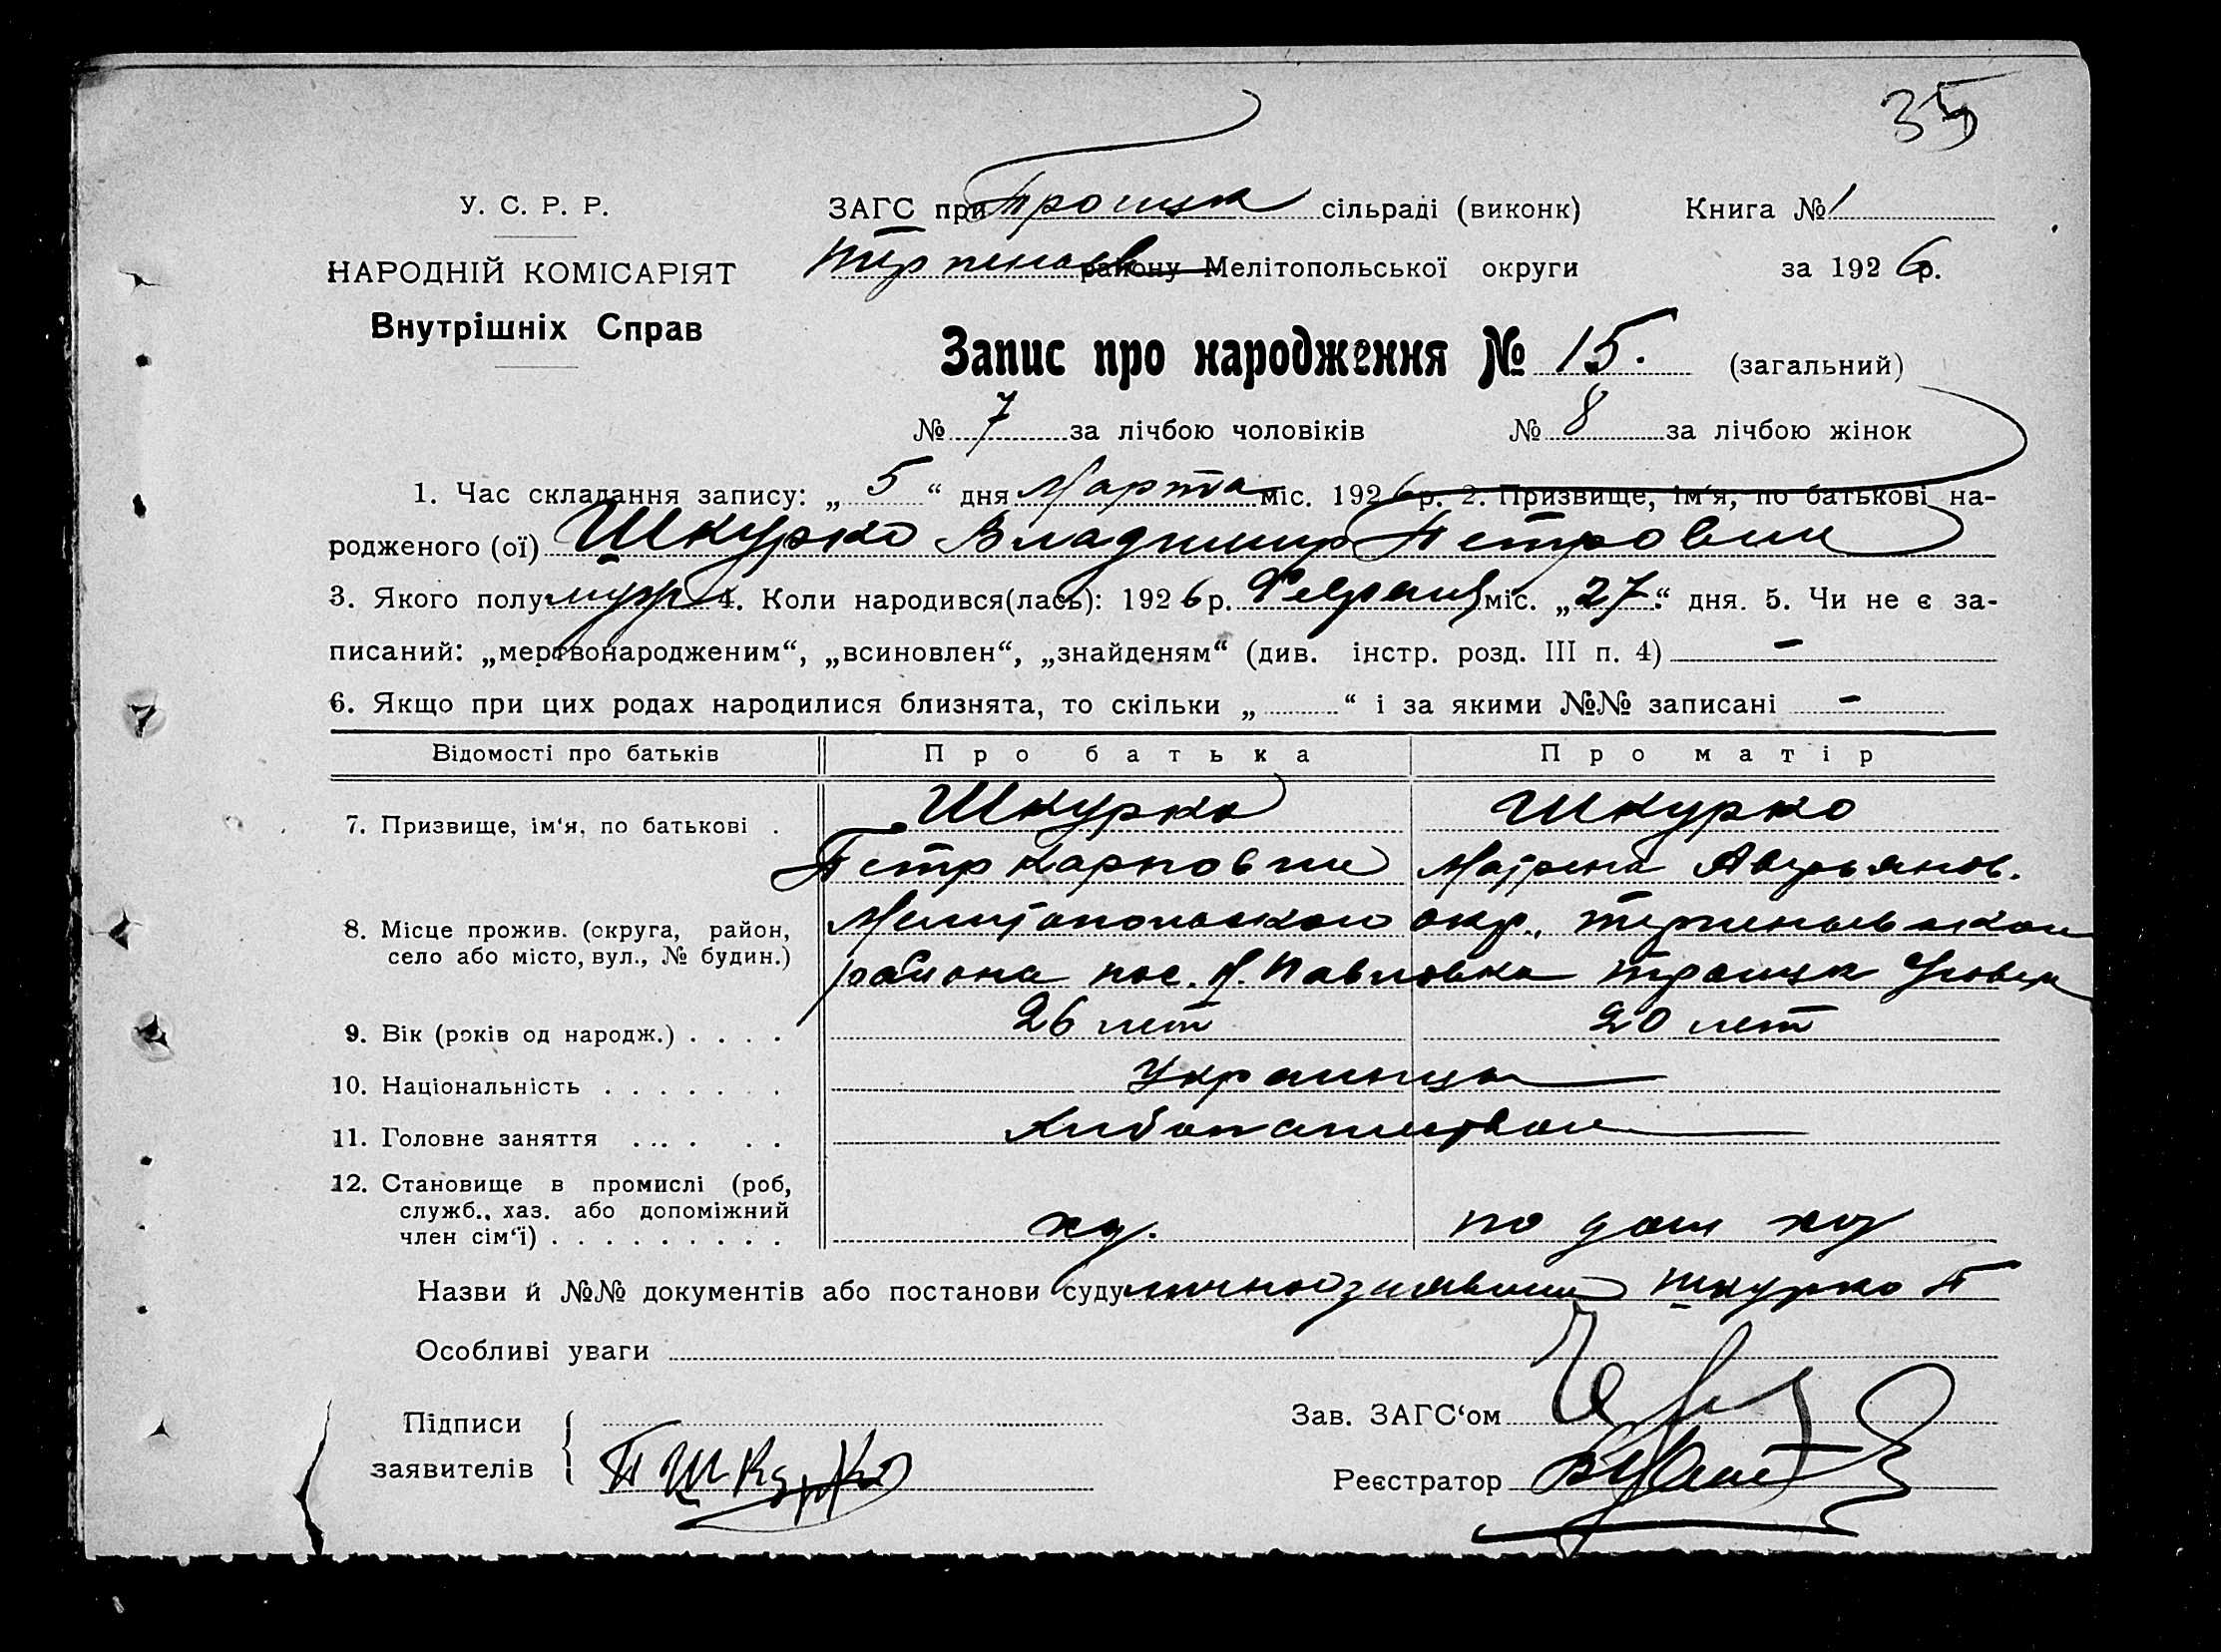 35
У. С. Р. Р.
НАРОДНІЙ КОМІСАРІЯТ
Внутрішніх Справ
ЗАГС при Троицк сільраді (виконк)
Книга № 1
Терпеньев району Мелітопольської округи
за 1926 р.
Запис про народження № 15. (загальний)
№ 7 за лічбою чоловіків № 8 за лічбою жінок
1. Час складання запису: „ 5 “ дня Марта міс. 1926 р. 2. Призвище, ім'я, по батькові на-
родженого (ої) Шкурко Владимир Петрович
3. Якого полу муж 4. Коли народився(лась): 1926 р. Февраля міс. „27“ дня. 5. Чи не є за-
писаний: „мертвонародженим“, „всиновлен“, „знайденям“ (див. інстр. розд. III п. 4) -
6. Якщо при цих родах народилися близнята, то скільки „ “ і за якими №№ записані -
Відомості про батьків Про батька Про матір
7. Призвище, ім'я, по батькові . Шкурко Шкурко
Петр Карпович Матрена Аверьянов.
8. Місце прожив. (округа, район, село або місто, вул., № будин.)
Мелитопольской окр., Терпеньевской
района пос. Н. Павловка Троицк
9. Вік (років од народж.) . . . . 26 лет 20 лет
10. Національність . . . . . . . Украинцы
11. Головне заняття . . . . . Хлебопашество
12. Становище в промислі (роб, служб., хаз. або допоміжний член сім'ї) . . . . . . . . .
хоз. по дом хоз
Назви й №№ документів або постанови суду лично заявил Шкурко П
Особливі уваги
Підписи
заявителів
П Шкурко
Зав. ЗАГС'ом
Реєстратор